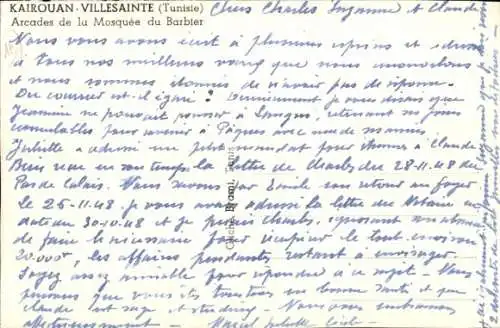 KAIROUAN-VILLESAINTE (Tunisie)
Arcades de la Mosquée du Barbier
Chers Charles Suzanne et Claude
Nous vous avons écrit à plusieurs reprises et adressé
à tous nos meilleurs vœux que nous renouvelons
et nous sommes étonnés de n'avoir pas de réponse.
Du courrier est-il égaré? je vous disais que
Jeannine ne pouvait venir à Longwy, retenant ses jours
cumulables pour venir à Pâques avec nous
Juliette a adressé un petit mandat pour étrennes à Claude
Bien reçu en son temps la lettre de Charles du 28-11-48 du
Pas de Calais. Nous savons par Emile son retour au foyer
le 25-11-48. je vous avais adressé la lettre du Notaire en
date du 30-10-48 et je priais Charles,
de faire le nécessaire pour récupérer le tout environ
20.000F, les affaires pendantes restant à envisager
Soyez assez aimable pour répondre à ce sujet - Nous
pensons que vous êtes toujours en bonne santé et que
Claude est sage et studieux - Nous vous embrassons
affectueusement - Marcel Juliette